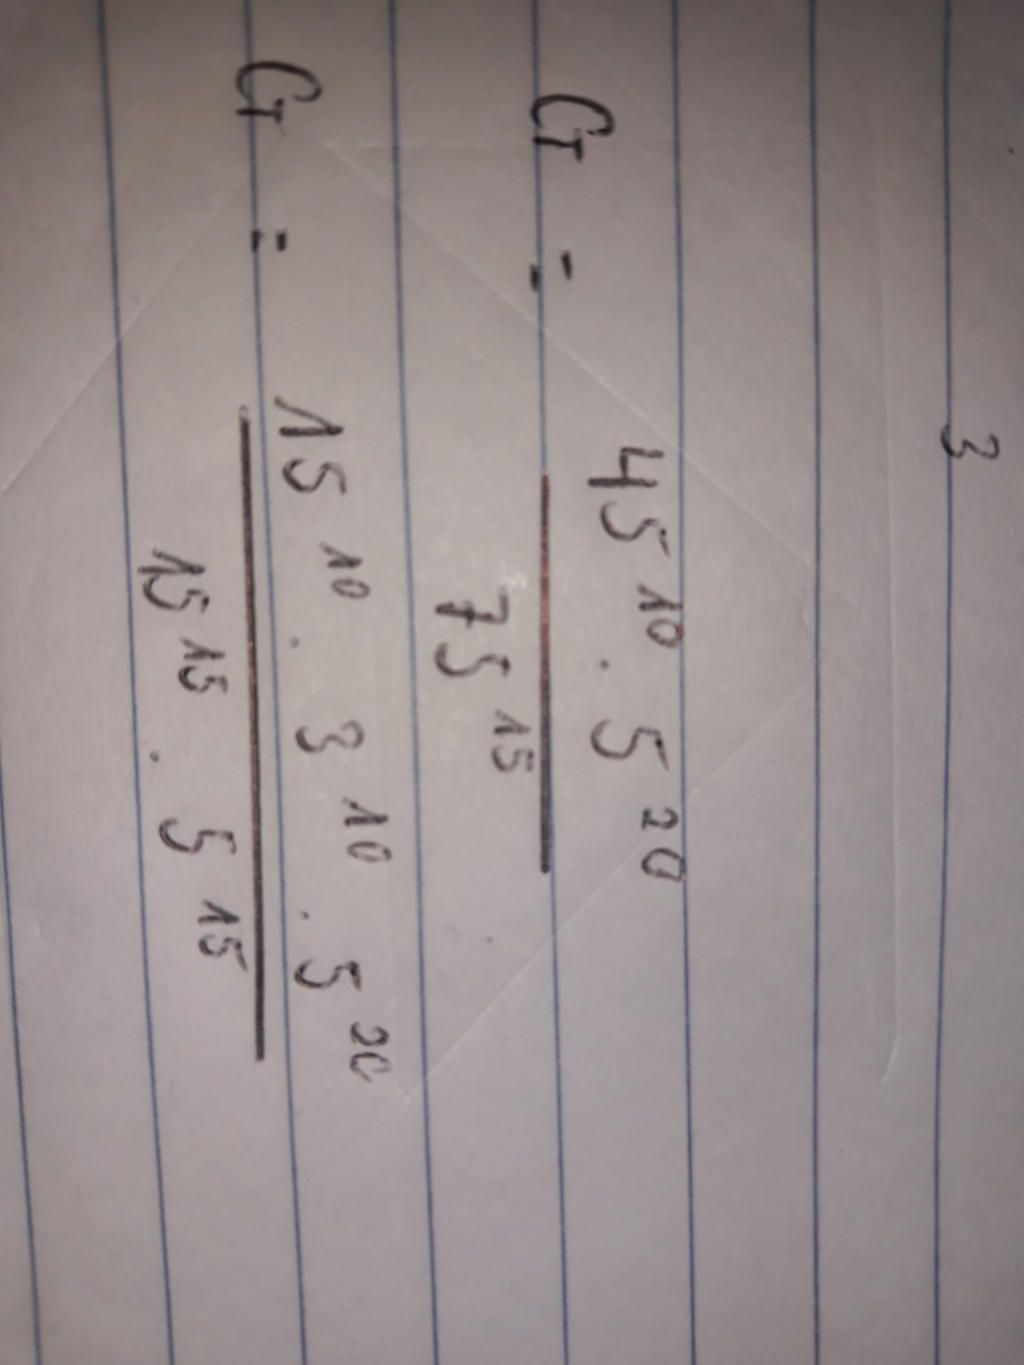 3
G = 45^10 . 5^20 / 75^15
G = 15^10 . 3^10 . 5^20 / 15^15 . 5^15